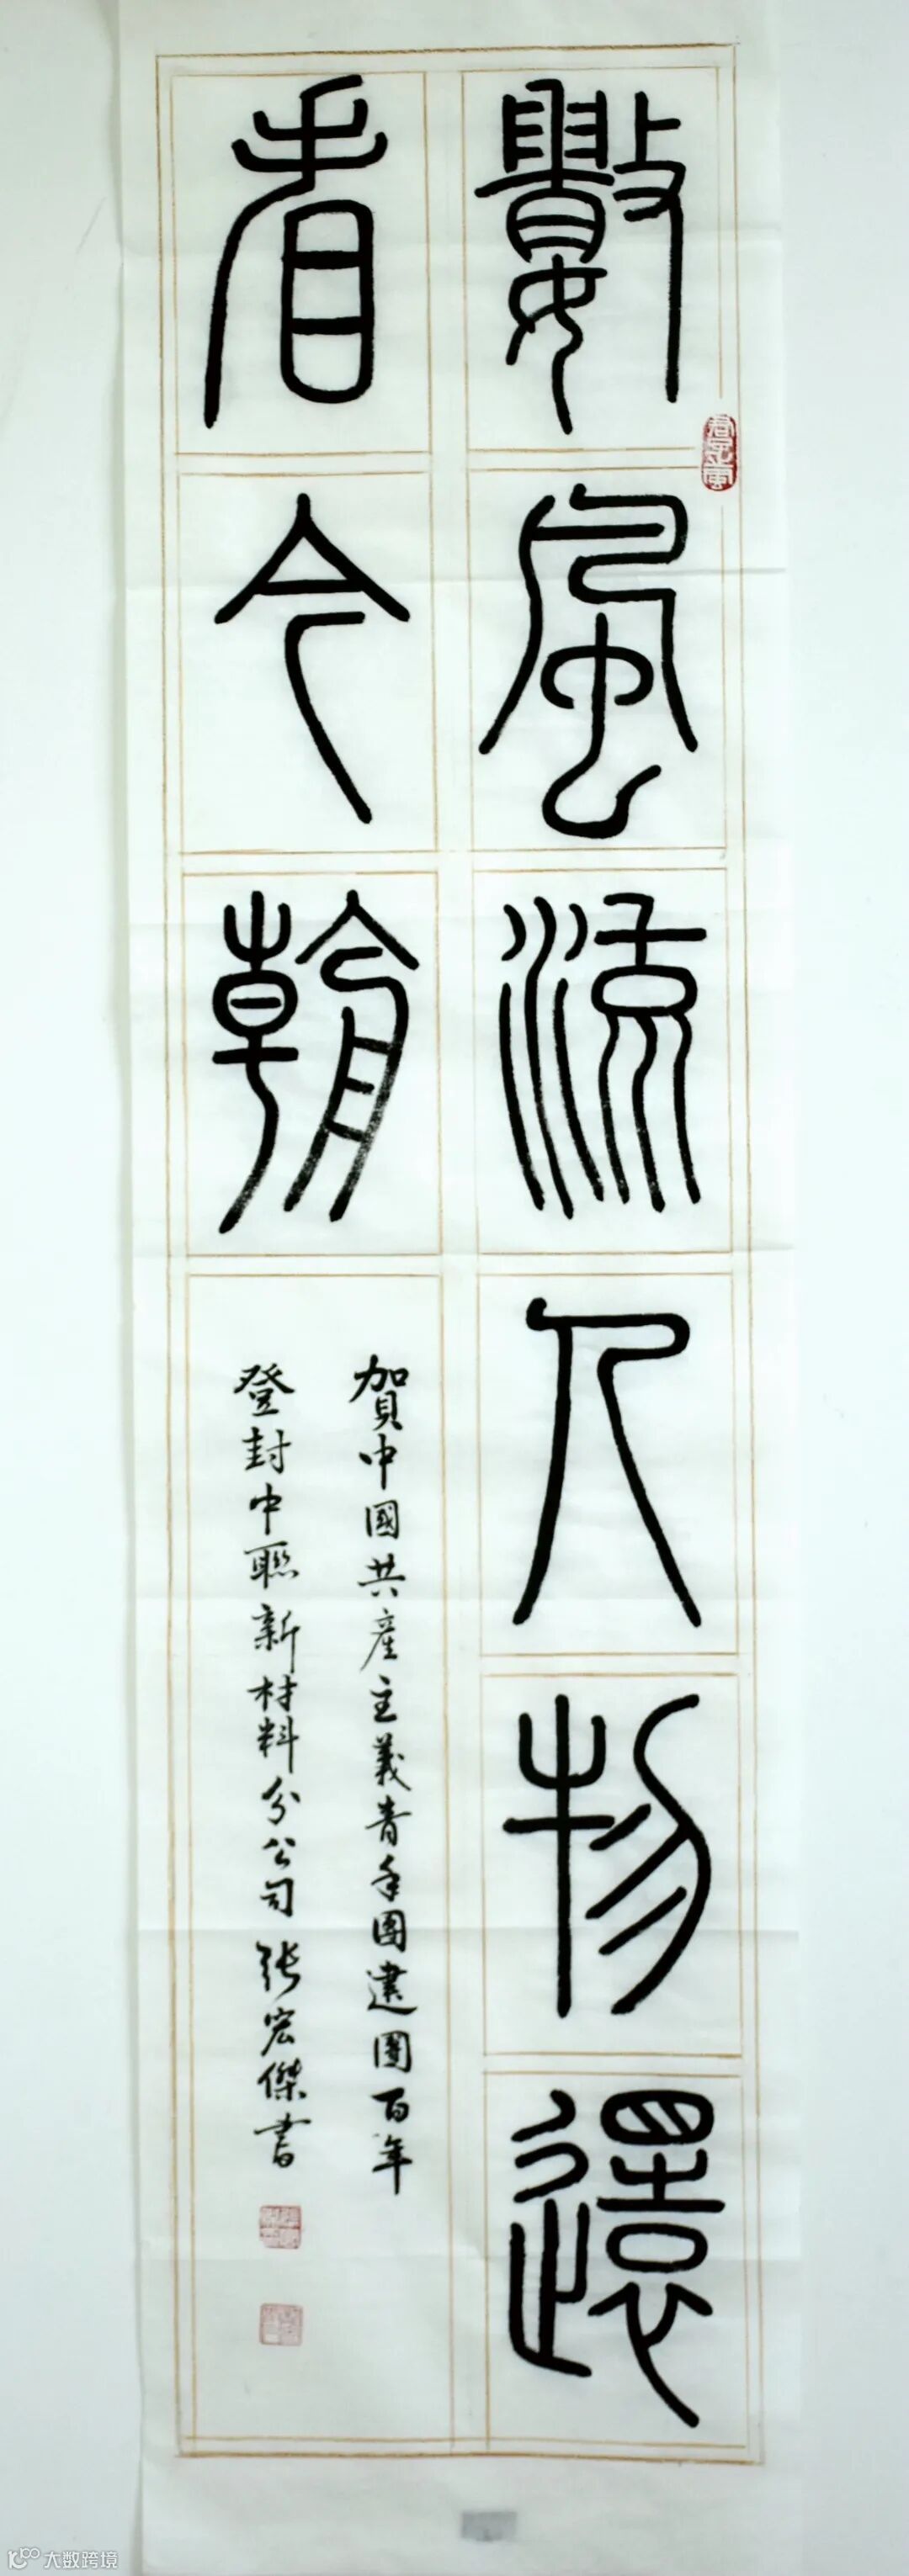 數風流人物還
看今朝
賀中國共產主義青年團建團百年
登封中聯新材料分公司張宏傑書
大数跨境